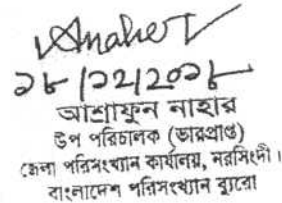 ১৮/১২/২০১৮
আশ্রাফুন নাহার
উপ পরিচালক (ভারপ্রাপ্ত)
জেলা পরিসংখ্যান কার্যালয়, নরসিংদী।
বাংলাদেশ পরিসংখ্যান ব্যুরো